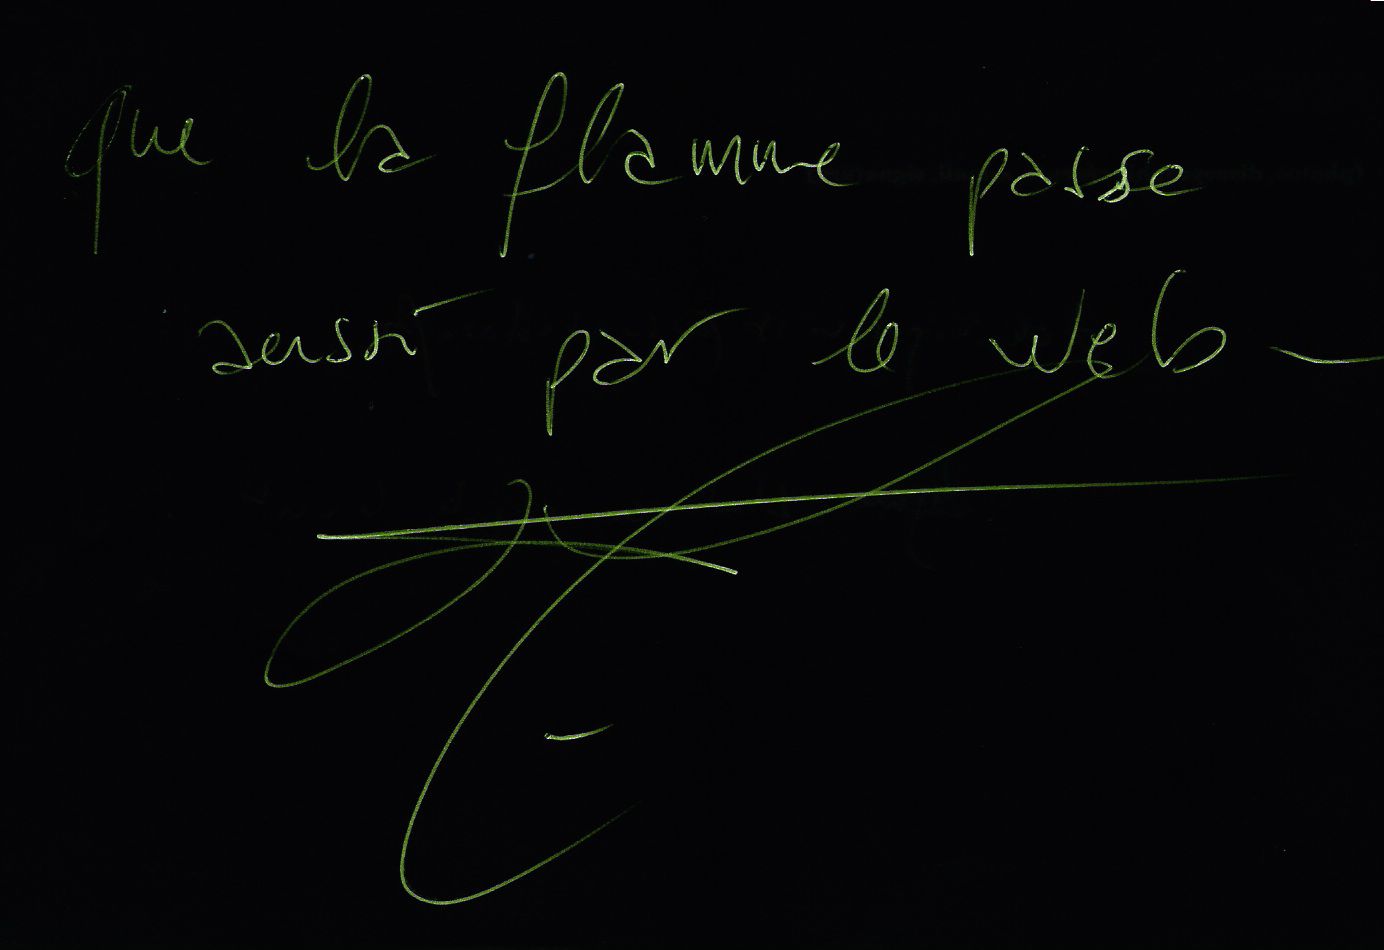 que la flamme passe
aussi par le web